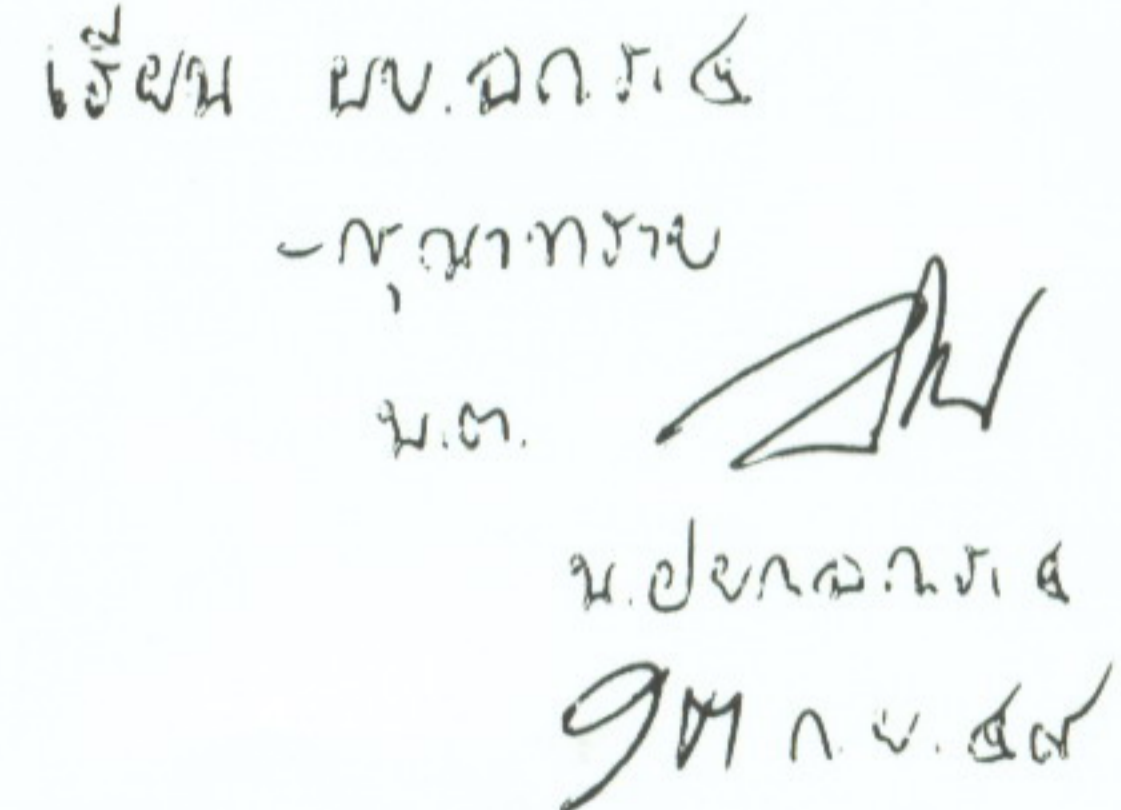 เรียน ผบ.ฉก.ร.๕
-กรุณาทราบ
พ.ต.
น.ฝยก.ฉก.ร.๕
๑๓ ก.ย. ๕๗